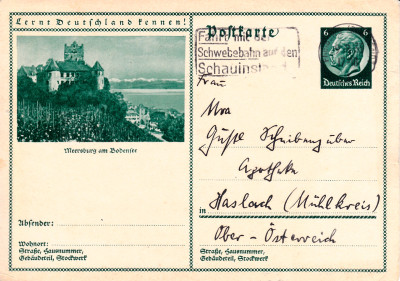 Lernt Deutschland kennen!
Meersburg am Bodensee
Absender:
Wohnort:
Straße, Hausnummer,
Gebäudeteil, Stockwerk
Postkarte
Fahrt mit der
Schwebebahn auf den
Schauinsland
6 6
Deutsches Reich
Frau
Apotheke
in Haslach (Mühlkreis)
Ober-Österreich
Straße, Hausnummer,
Gebäudeteil, Stockwerk